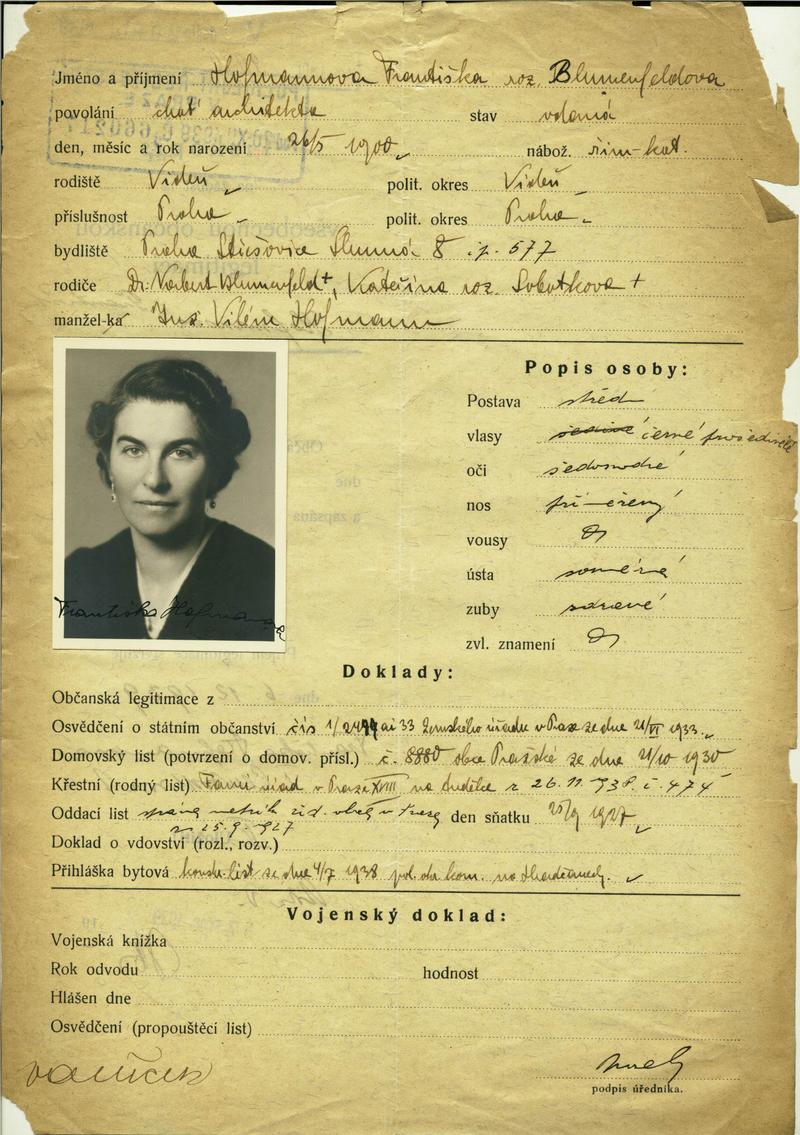 Jméno a příjmení Hofmannova Františka roz. Blumenfeldova
povolání chať architekta stav vdaná
den, měsíc a rok narození 26/5 1900 nábož. řím-kat.
rodiště Vídeň polit. okres Vídeň
příslušnost Praha polit. okres Praha
bydliště Praha Střešovice Slunná 8 č.p. 577
rodiče Dr. Norbert Blumenfeld +, Kateřina roz. Sobotkova +
manžel-ka Ing. Vilém Hofmann
Popis osoby:
Postava střed
vlasy šedivé černé prošedivělé
oči šedomodré
nos přiměřený
vousy
ústa souměrná
zuby zdravé
zvl. znamení
Františka Hofmannova
Doklady:
Občanská legitimace z
Osvědčení o státním občanství čís 1/2494 ai 33 Zemského úřadu v Praze ze dne 21/VI 1933
Domovský list (potvrzení o domov. přísl.) č. 8880 obce Pražské ze dne 21/10 1930
Křestní (rodný list) Farní úřad v Praze XVIII na Andělce z 26.11.938. č. 474
Oddací list správa matrik žid. obce v Praze den sňatku 25/9 1927
z 25.9.927
Doklad o vdovství (rozl., rozv.)
Přihláška bytová konskr. list ze dne 4/7 1938 pol. okr. kom. na Hradčanech.
Vojenský doklad:
Vojenská knížka
Rok odvodu hodnost
Hlášen dne
Osvědčení (propouštěcí list)
podpis úředníka.